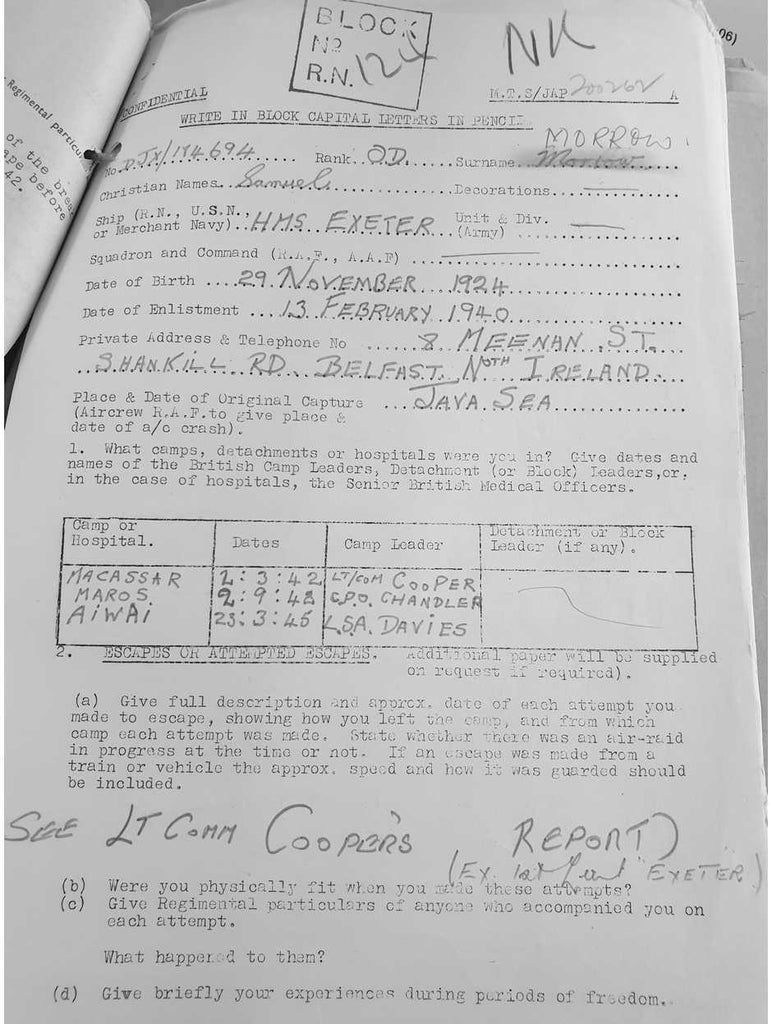 BLOCK
Nº
R.N. 124
NK
06)
CONFIDENTIAL
M.T.S/JAP A
WRITE IN BLOCK CAPITAL LETTERS IN PENCIL
MORROW
No. D.JX/184694 Rank. O.D. Surname Morrow
Christian Names. Samuel Decorations.
Ship (R.N., U.S.N., or Merchant Navy). HMS. EXETER Unit & Div. (Army)
Squadron and Command (R.A.F., A.A.F)
Date of Birth 29. NOVEMBER 1924
Date of Enlistment 13 FEBRUARY 1940
Private Address & Telephone No 8 MEENAN ST.
SHANKILL RD. BELFAST. NOTH IRELAND.
Place & Date of Original Capture JAVA SEA
(Aircrew R.A.F. to give place &
date of a/c crash).
1. What camps, detachments or hospitals were you in? Give dates and
names of the British Camp Leaders, Detachment (or Block) Leaders, or,
in the case of hospitals, the Senior British Medical Officers.
Camp or Hospital. Dates Camp Leader Detachment or Block Leader (if any).
MACASSAR 2:3:42 LT/COM COOPER
MAROS. 2:9:42 C.P.O. CHANDLER
AIWAI 23:3:45 LSA. DAVIES
2. ESCAPES OR ATTEMPTED ESCAPES. Additional paper will be supplied
on request if required).
(a) Give full description and approx. date of each attempt you
made to escape, showing how you left the camp, and from which
camp each attempt was made. State whether there was an air-raid
in progress at the time or not. If an escape was made from a
train or vehicle the approx. speed and how it was guarded should
be included.
SEE LT COMM COOPER'S REPORT)
(EX. 1st "EXETER)
(b) Were you physically fit when you made these attempts?
(c) Give Regimental particulars of anyone who accompanied you on
each attempt.
What happened to them?
(d) Give briefly your experiences during periods of freedom.
Regimental particu
of the
ape before
42.